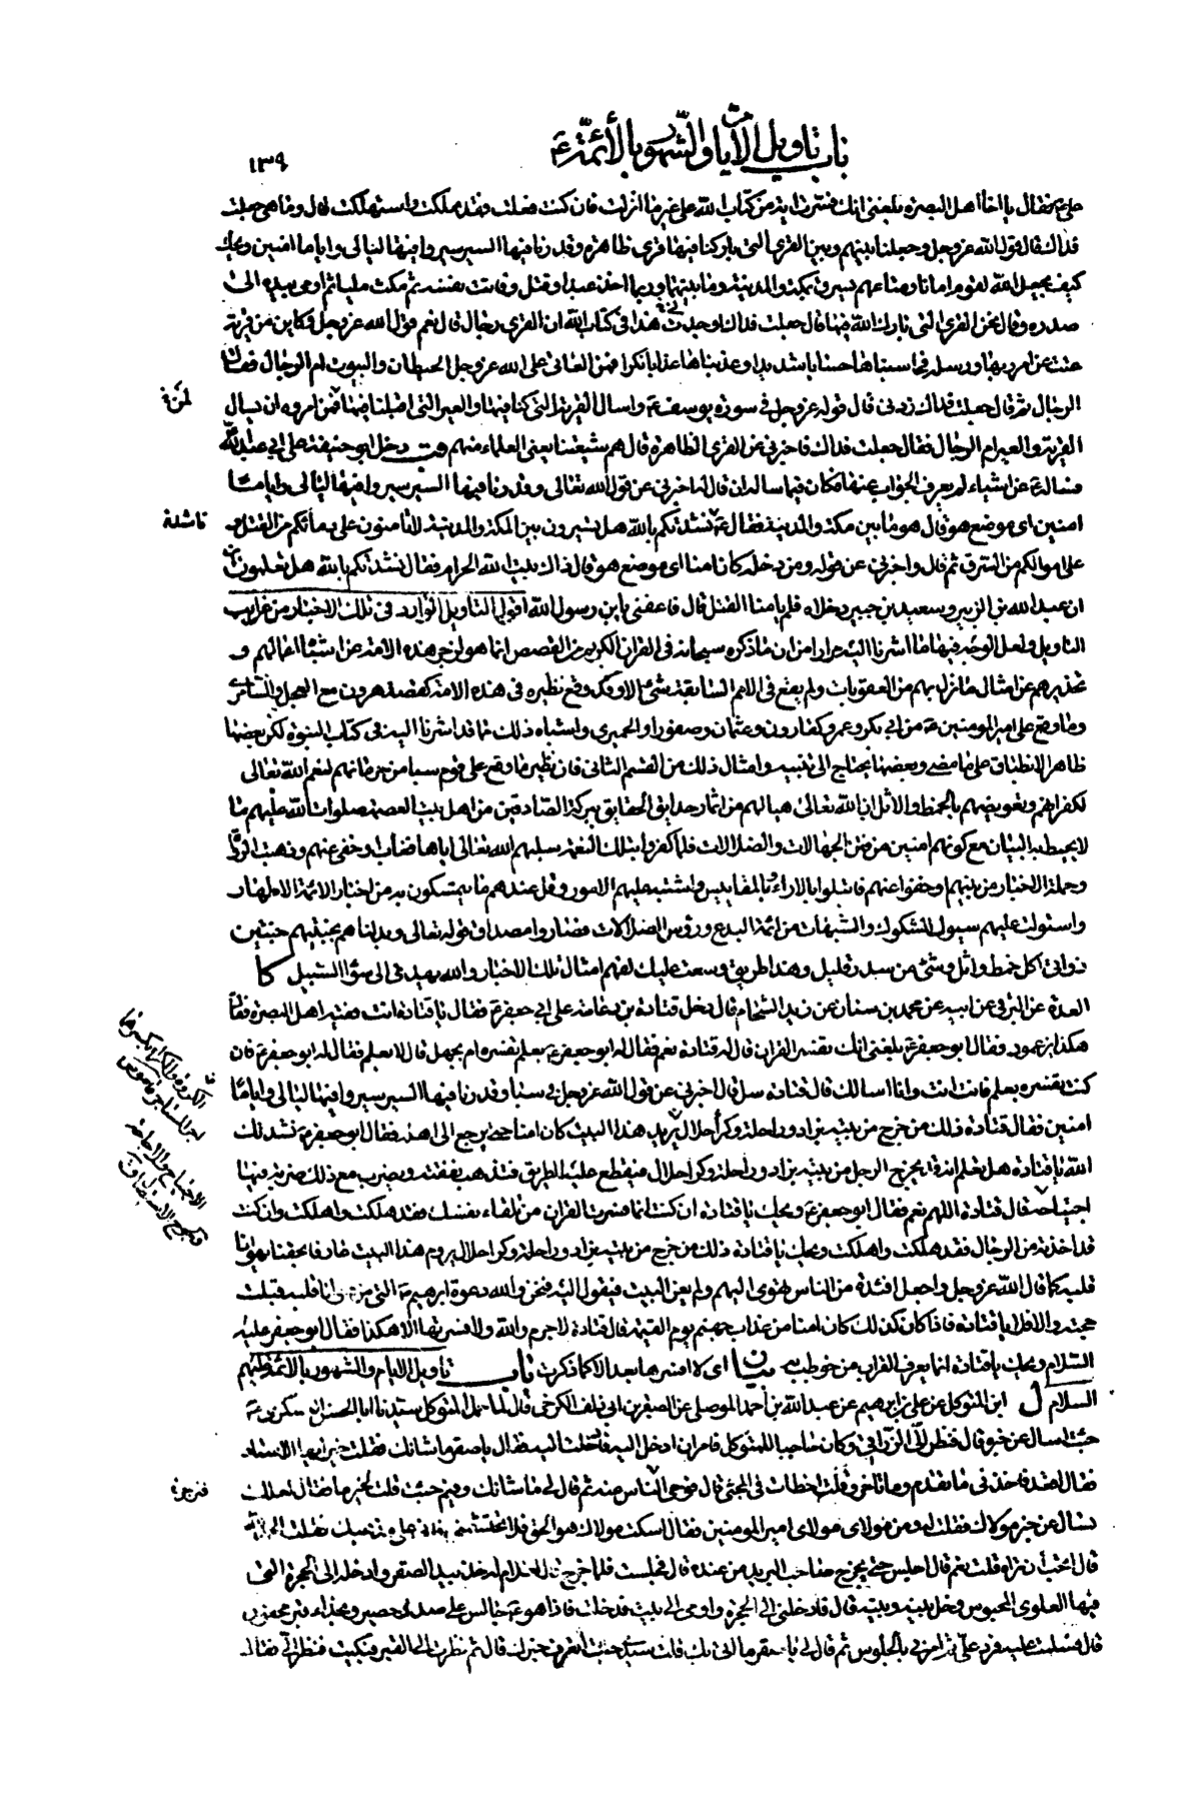 باب تأويل الأيام والشهور بالأئمة ع
١٣٩
علي ع فقال يا أخا أهل البصرة بلغني انك فسرت اية من كتاب الله على غير ما انزلت فان كنت فعلت فقد هلكت واستهلكت قال وما هي جعلت
فداك قال قول الله عز وجل وجعلنا بينهم وبين القرى التي باركنا فيها قرى ظاهرة وقدرنا فيها السير سيروا فيها ليالي واياما امنين ويحك
كيف يجعل الله لقوم امانا ومتاعهم يسرق بمكة والمدينة وما بينهما وربما اخذ عبدا وقتل وفاتت نفسه ثم مكث مليا ثم اومى بيده الى
صدره وقال نحن القرى التي بارك الله فيها قال جعلت فداك اوجدت هذا في كتاب الله ان القرى رجال قال نعم قول الله عز وجل وكاين من قرية
عتت عن امر ربها ورسله فحاسبناها حسابا شديدا وعذبناها عذابا نكرا فمن العاتي على الله عز وجل الحيطان والبيوت ام الرجال فقال
الرجال ثم قال جعلت فداك زدني قال قوله عز وجل في سورة يوسف ع واسال القرية التي كنا فيها والعير التي اقبلنا فيها فمن امروه ان يسال
القرية والعير ام الرجال فقال جعلت فداك فاخبرني عن القرى الظاهرة قال هم شيعتنا يعني العلماء منهم دخل ابو حنيفة على ابي عبدالله
فساله عن اشياء لم يعرف الجواب عنها فكان فيما ساله ان قال له اخبرني عن قول الله تعالى وقدرنا فيها السير سيروا فيها ليالي واياما
امنين اي موضع هو قال هو ما بين مكة والمدينة فقال ع نشدتكم بالله هل تسيرون بين مكة والمدينة لا تامنون على دمائكم من القتل و
على اموالكم من السرق ثم قال واخبرني عن قوله ومن دخله كان امنا اي موضع هو قال ذاك بيت الله الحرام فقال نشدتكم بالله هل تعلمون
ان عبد الله بن الزبير وسعيد بن جبير دخلاه فلم يامنا القتل قال فاعفني يا بن رسول الله اقول التاويل الوارد في تلك الاخبار من غرايب
التاويل ولعل الوجه فيها ما اشرنا اليه مرارا من ان ما ذكره سبحانه في القران الكريم من القصص انما هو لزجر هذه الامة عن اشباه اعمالهم و
تحذيرهم عن امثال ما نزل بهم من العقوبات ولم يقع في الامم السابقة شيء الا وقد وقع نظيره في هذه الامة كقصة هرون مع العجل والسامري
وما وقع على امير المومنين ع من ابي بكر وعمر وكقارون وعثمان وصفورا والحميري واشباه ذلك مما قد اشرنا اليه في كتاب النبوة لكن بعضها
ظاهر الانطباق على ما مضى وبعضها يحتاج الى تنبيه وامثال ذلك من القسم الثاني فان نظير ما وقع على قوم سبا من حرمانهم لنعم الله تعالى
لكفرانهم وتعويضهم بالخمط والاثل ان الله تعالى هيا لهم من اثمار حدايق الحقايق ببركة الصادقين من اهل بيت العصمة صلوات الله عليهم ما
لا يحيط به البيان مع كونهم امنين من فتن الجهالات والضلالات فلما كفروا بتلك النعمة سلبهم الله تعالى اياها فغاب او خفي عنهم وذهب الرواة
وحملة الاخبار من بينهم او خفوا عنهم فابتلوا بالاراء والمقاييس واشتبه عليهم الامور وقل عندهم ما يتمسكون به من اخبار الائمة الاطهار
واستولت عليهم سيول الشكوك والشبهات من ائمة البدع ورؤس الضلالات فصاروا مصداق قوله تعالى وبدلناهم بجنتيهم جنتين
ذواتي اكل خمط واثل وشيء من سدر قليل وهذا طريق وسعت عليك لفهم امثال تلك الاخبار والله يهدي الى سواء السبيل كا
العدة عن البرقي عن ابيه عن محمد بن سنان عن زيد الشحام قال دخل قتادة بن دعامة على ابي جعفر ع فقال يا قتادة انت فقيه اهل البصرة فقال
هكذا يزعمون فقال ابو جعفر ع بلغني انك تفسر القران قال له قتادة نعم فقال له ابو جعفر ع بعلم تفسره ام بجهل قال لا بعلم فقال له ابو جعفر ع فان
كنت تفسره بعلم فانت انت وانا اسالك قال قتادة سل قال اخبرني عن قول الله عز وجل في سبا وقدرنا فيها السير سيروا فيها ليالي واياما
امنين فقال قتادة ذلك من خرج من بيته بزاد وراحلة وكرا حلال يريد هذا البيت كان امنا حتى يرجع الى اهله فقال ابو جعفر ع نشدتك
الله يا قتادة هل تعلم انه قد يخرج الرجل من بيته بزاد وراحلة وكرا حلال فيقطع عليه الطريق فتذهب نفقته ويضرب مع ذلك ضربة فيها
اجتياحه قال قتادة اللهم نعم فقال ابو جعفر ع ويحك يا قتادة ان كنت انما فسرت القران من تلقاء نفسك فقد هلكت واهلكت وان كنت
قد اخذته من الرجال فقد هلكت واهلكت ويحك يا قتادة ذلك من خرج من بيته بزاد وراحلة وكرا حلال يروم هذا البيت عارفا بحقنا يهوانا
قلبه كما قال الله عز وجل واجعل افئدة من الناس تهوى اليهم ولم يعن البيت فيقول اليه فنحن والله دعوة ابرهيم ع التي من هوانا قلبه قبلت
حجته والا فلا يا قتادة فاذا كان كذلك كان امنا من عذاب جهنم يوم القيمة قال قتادة لا جرم والله لا فسرتها الا هكذا فقال ابو جعفر عليه
السلام ويحك يا قتادة انما يعرف القران من خوطب به بيان اي لا افسرها بعد الا كما ذكرت باب تاويل الايام والشهور بالائمة عليهم
السلام ل ابن المتوكل عن علي بن ابرهيم عن عبد الله بن احمد الموصلي عن الصقر بن ابي دلف الكرخي قال لما حمل المتوكل سيدنا ابا الحسن العسكري ع
جئت اسال عن خبره قال فنظر الي الزرافي وكان حاجبا للمتوكل فامر ان ادخل اليه فادخلت اليه فقال يا صقر ما شانك فقلت خير ايها الاستاد
فقال اقعد فاخذني ما تقدم وما تاخر وقلت اخطات في المجيء قال فوحى الناس عنه ثم قال لي ما شانك وفيم جئت قلت لخير ما فقال لعلك
تسال عن خبر مولاك فقلت له ومن مولاي مولاي امير المومنين فقال اسكت مولاك هو الحق فلا تحتشمني فاني على مذهبك فقلت الحمد لله
قال اتحب ان تراه قلت نعم قال اجلس حتى يخرج صاحب البريد من عنده قال فجلست فلما خرج قال لغلام له خذ بيد الصقر وادخله الى الحجرة التي
فيها العلوي المحبوس وخل بينه وبينه قال فادخلني الى الحجرة واومى الى بيت فدخلت فاذا هو ع جالس على صدر حصير وبحذاه قبر محفور
قال فسلمت عليه فرد علي ثم امرني بالجلوس ثم قال لي يا صقر ما اتى بك قلت سيدي جئت اتعرف خبرك قال ثم نظرت الى القبر فبكيت فنظر الي فقال
ناشدة